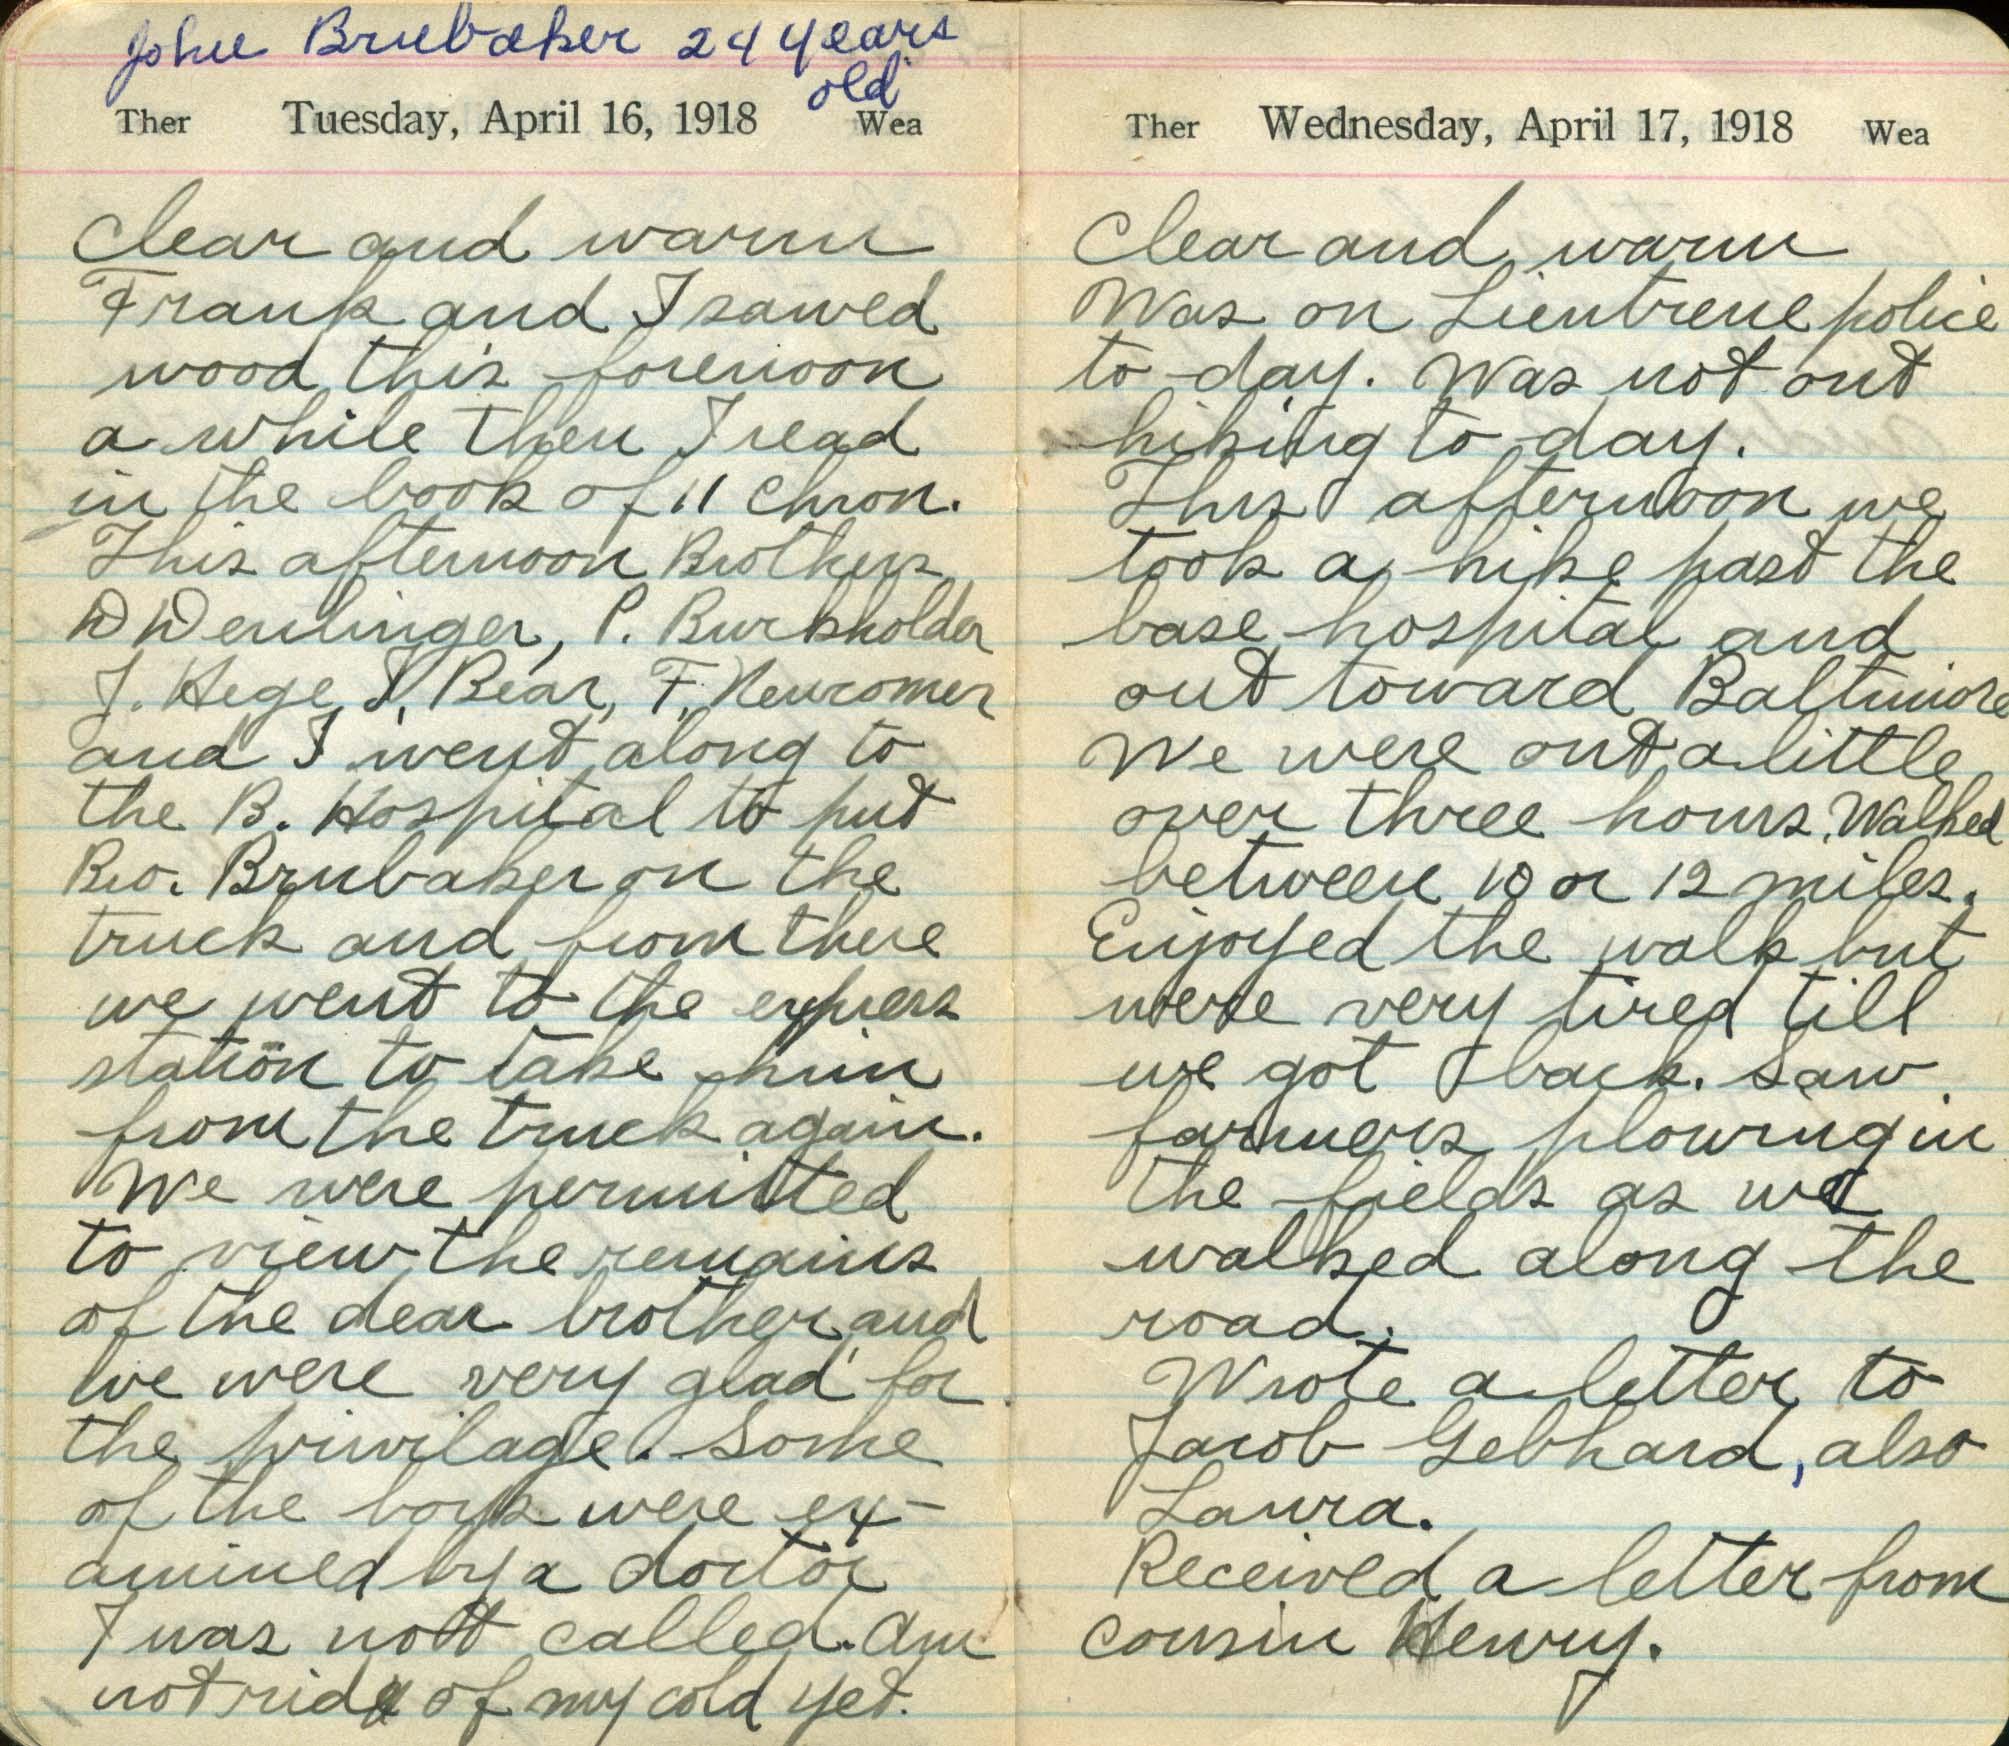 John Brubaker 24 years
old
Ther Tuesday, April 16, 1918 Wea
Clear and warm
Frank and I sawed
wood this forenoon
a while then I read
in the book of 11 Chron.
This afternoon Brothers
D Denlinger, P. Burkholder
J. Hege, J. Bear, F. Newcomer
and I went along to
the B. Hospital to put
Bro. Brubaker on the
truck and from there
we went to the express
station to take him
from the truck again.
We were permitted
to view the remains
of the dear brother and
we were very glad for
the privilage. Some
of the boys were ex-
amined by a doctor
I was nott called. Am
not rid of my cold yet.
Ther Wednesday, April 17, 1918 Wea
Clear and warm
Was on Lientrene police
to-day. Was not out
hiking to-day.
This afternoon we
took a hike past the
base hospital and
out toward Baltimore
We were out a little
over three hours. Walked
between 10 or 12 miles.
Enjoyed the walk but
were very tired till
we got back. Saw
farmers plowing in
the fields as we
walked along the
road.
Wrote a letter to
Jacob Gebhard, also
Laura.
Received a letter from
cousin Henry.